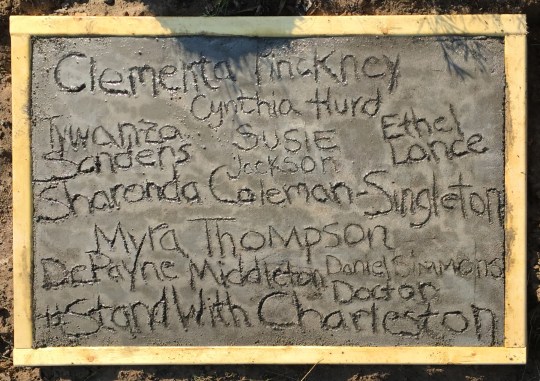 Clementa Pinckney
Cynthia Hurd
Tywanza Sanders
Susie Jackson
Ethel Lance
Sharonda Coleman-Singleton
Myra Thompson
DePayne Middleton
Daniel Simmons
Doctor
#StandWith Charleston